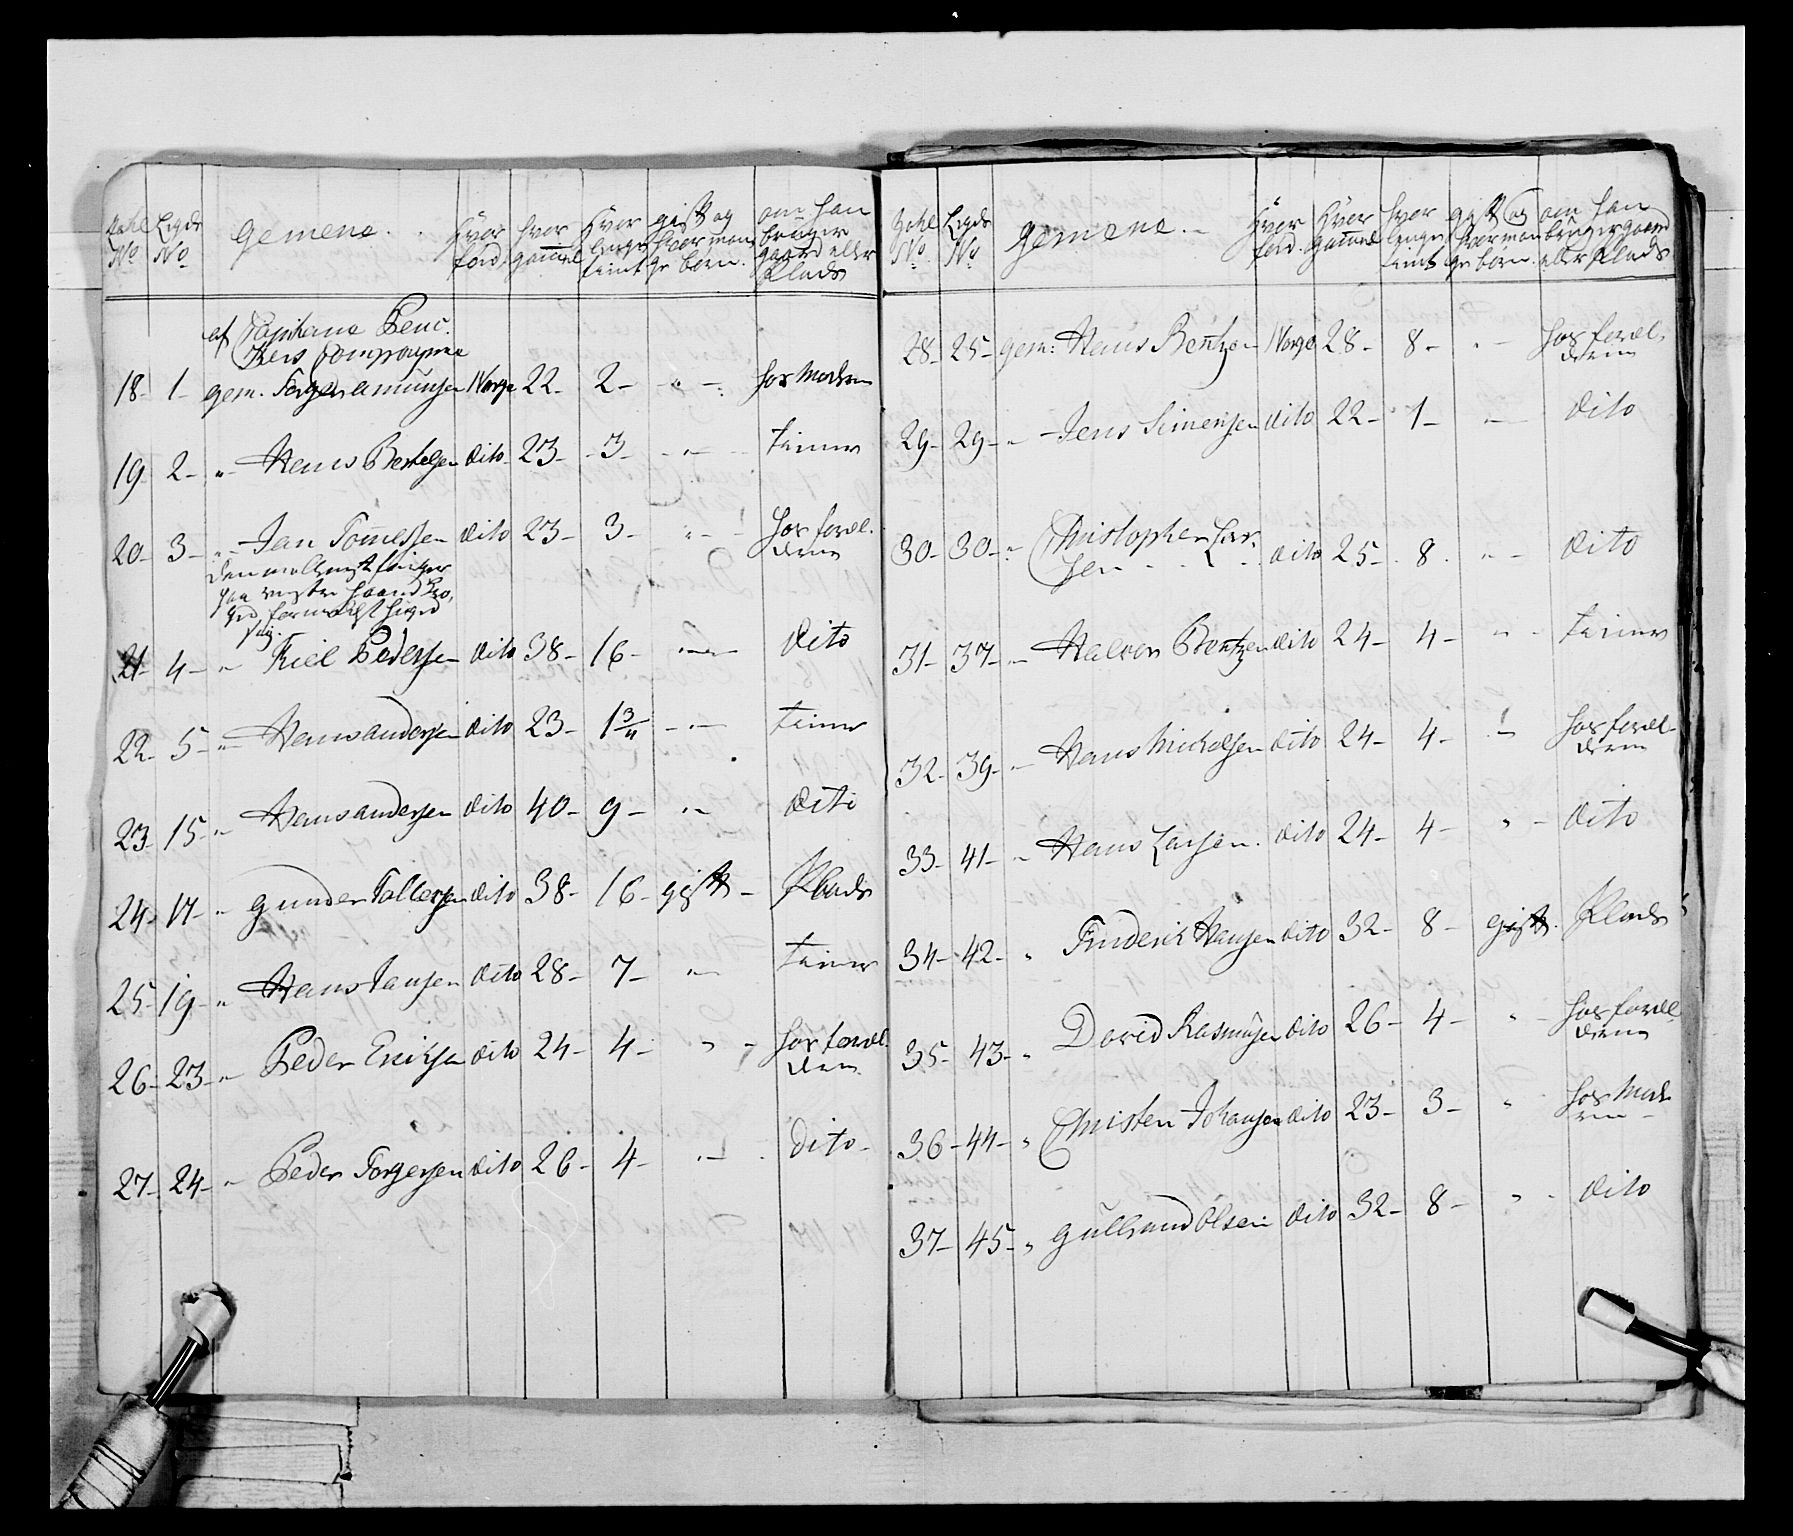 Tahl No | Legds No | Gemene. | Hvor fød. | hvor gammel | hvor lenge tient | gift og hvor mange børn. | om han bruger gaard eller Plads
af Capitaine
Compagnie
18- 1- gem. Torger Amunsen Norge 22- 2- " -. hos Modren
19- 2- " Hans Bertelsen dito 23- 3- " tiener
20- 3- " Jan Tommessen dito 23- 3- " hos foræl-
dren
finger
paa venstre haand
21- 4- " Kiel Pedersen dito 38- 16- " dito
22- 5- " Hans Andersen dito 23- 1 3/4 " tiener
23- 15- " Hans Andersen dito 40- 9- " dito
24- 17- " Gunder Tollersen dito 38- 16- gift- Plads
25- 19- " Hans Jansen dito 28- 7- " tiener
26- 23- " Peder Eriksen dito 24- 4- " hos foræl-
dren
27- 24- " Peder Torgersen dito 26- 4- " dito-
Tahl No. | Legds No | Gemene.- | Hvor fød. | Hvor gammel | hvor lenge tient | gift og hvor mange børn. | om han bruger gaard eller Plads
28- 25- gem: Hans Bentzen Norge 28- 8- " hos foræl-
dren
29- 29- " Jens Simensen dito 22- 1- " dito
30- 30- " Christopher Lar-
sen dito 25- 8. " dito
31- 37- " Halvor Bentzen dito 24- 4- " tiener
32- 39- " Hans Mickelsen dito 24- 4- " hos foræl-
dren
33- 41- " Hans Larsen. dito 24- 4- " dito
34- 42- " Friderik Hansen dito 32- 8- gift. Plads
35- 43- " David Rasmusen dito 26- 4- " hos foræl-
dren
36- 44- " Christen Johansen dito 23- 3- " hos Mod-
ren-
37- 45- " Gulbrand Olsen dito 32- 8- " dito